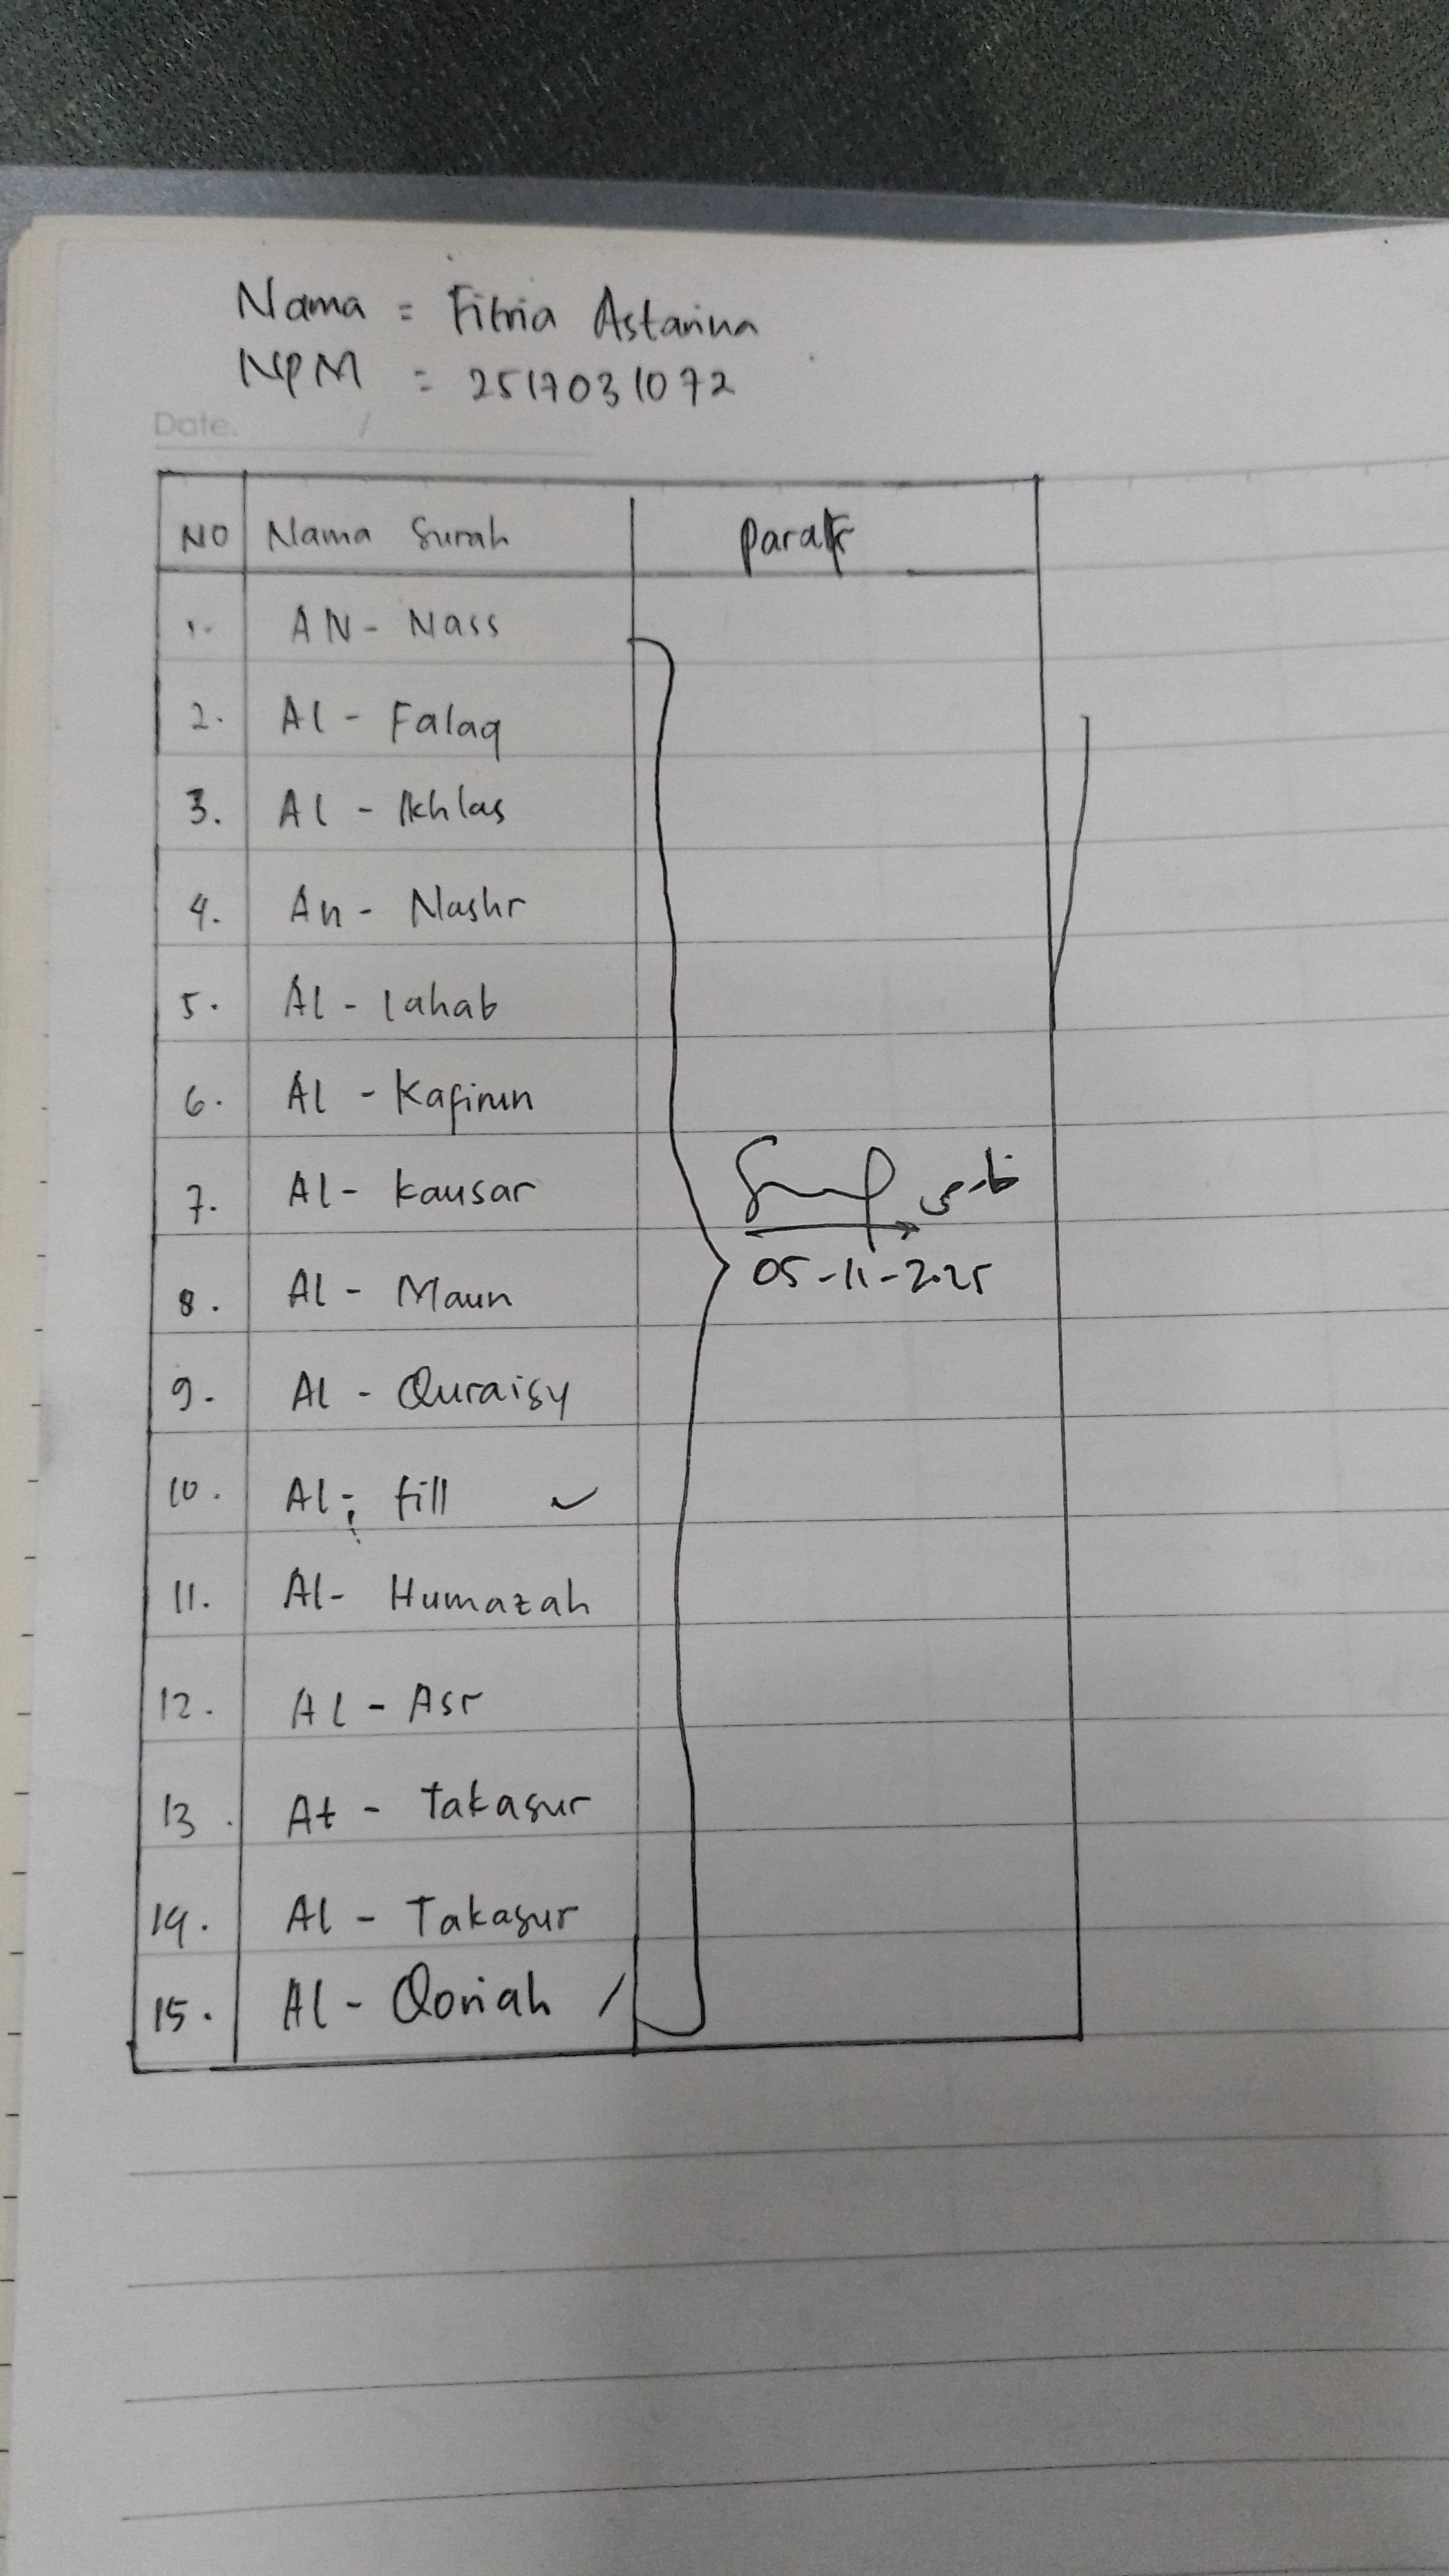 Nama = Fitria Astarina
NPM = 2517031072
Date. /
NO Nama Surah Paraf
1. AN - Nass
2. Al - Falaq
3. Al - Ikhlas
4. An - Nashr
5. Al - lahab
6. Al - Kafirun
7. Al - kausar
8. Al - Maun
05-11-2025
9. Al - Quraisy
10. Al - fill ✓
11. Al- Humazah
12. Al - Asr
13. At - Takasur
14. Al - Takasur
15. Al - Qoriah